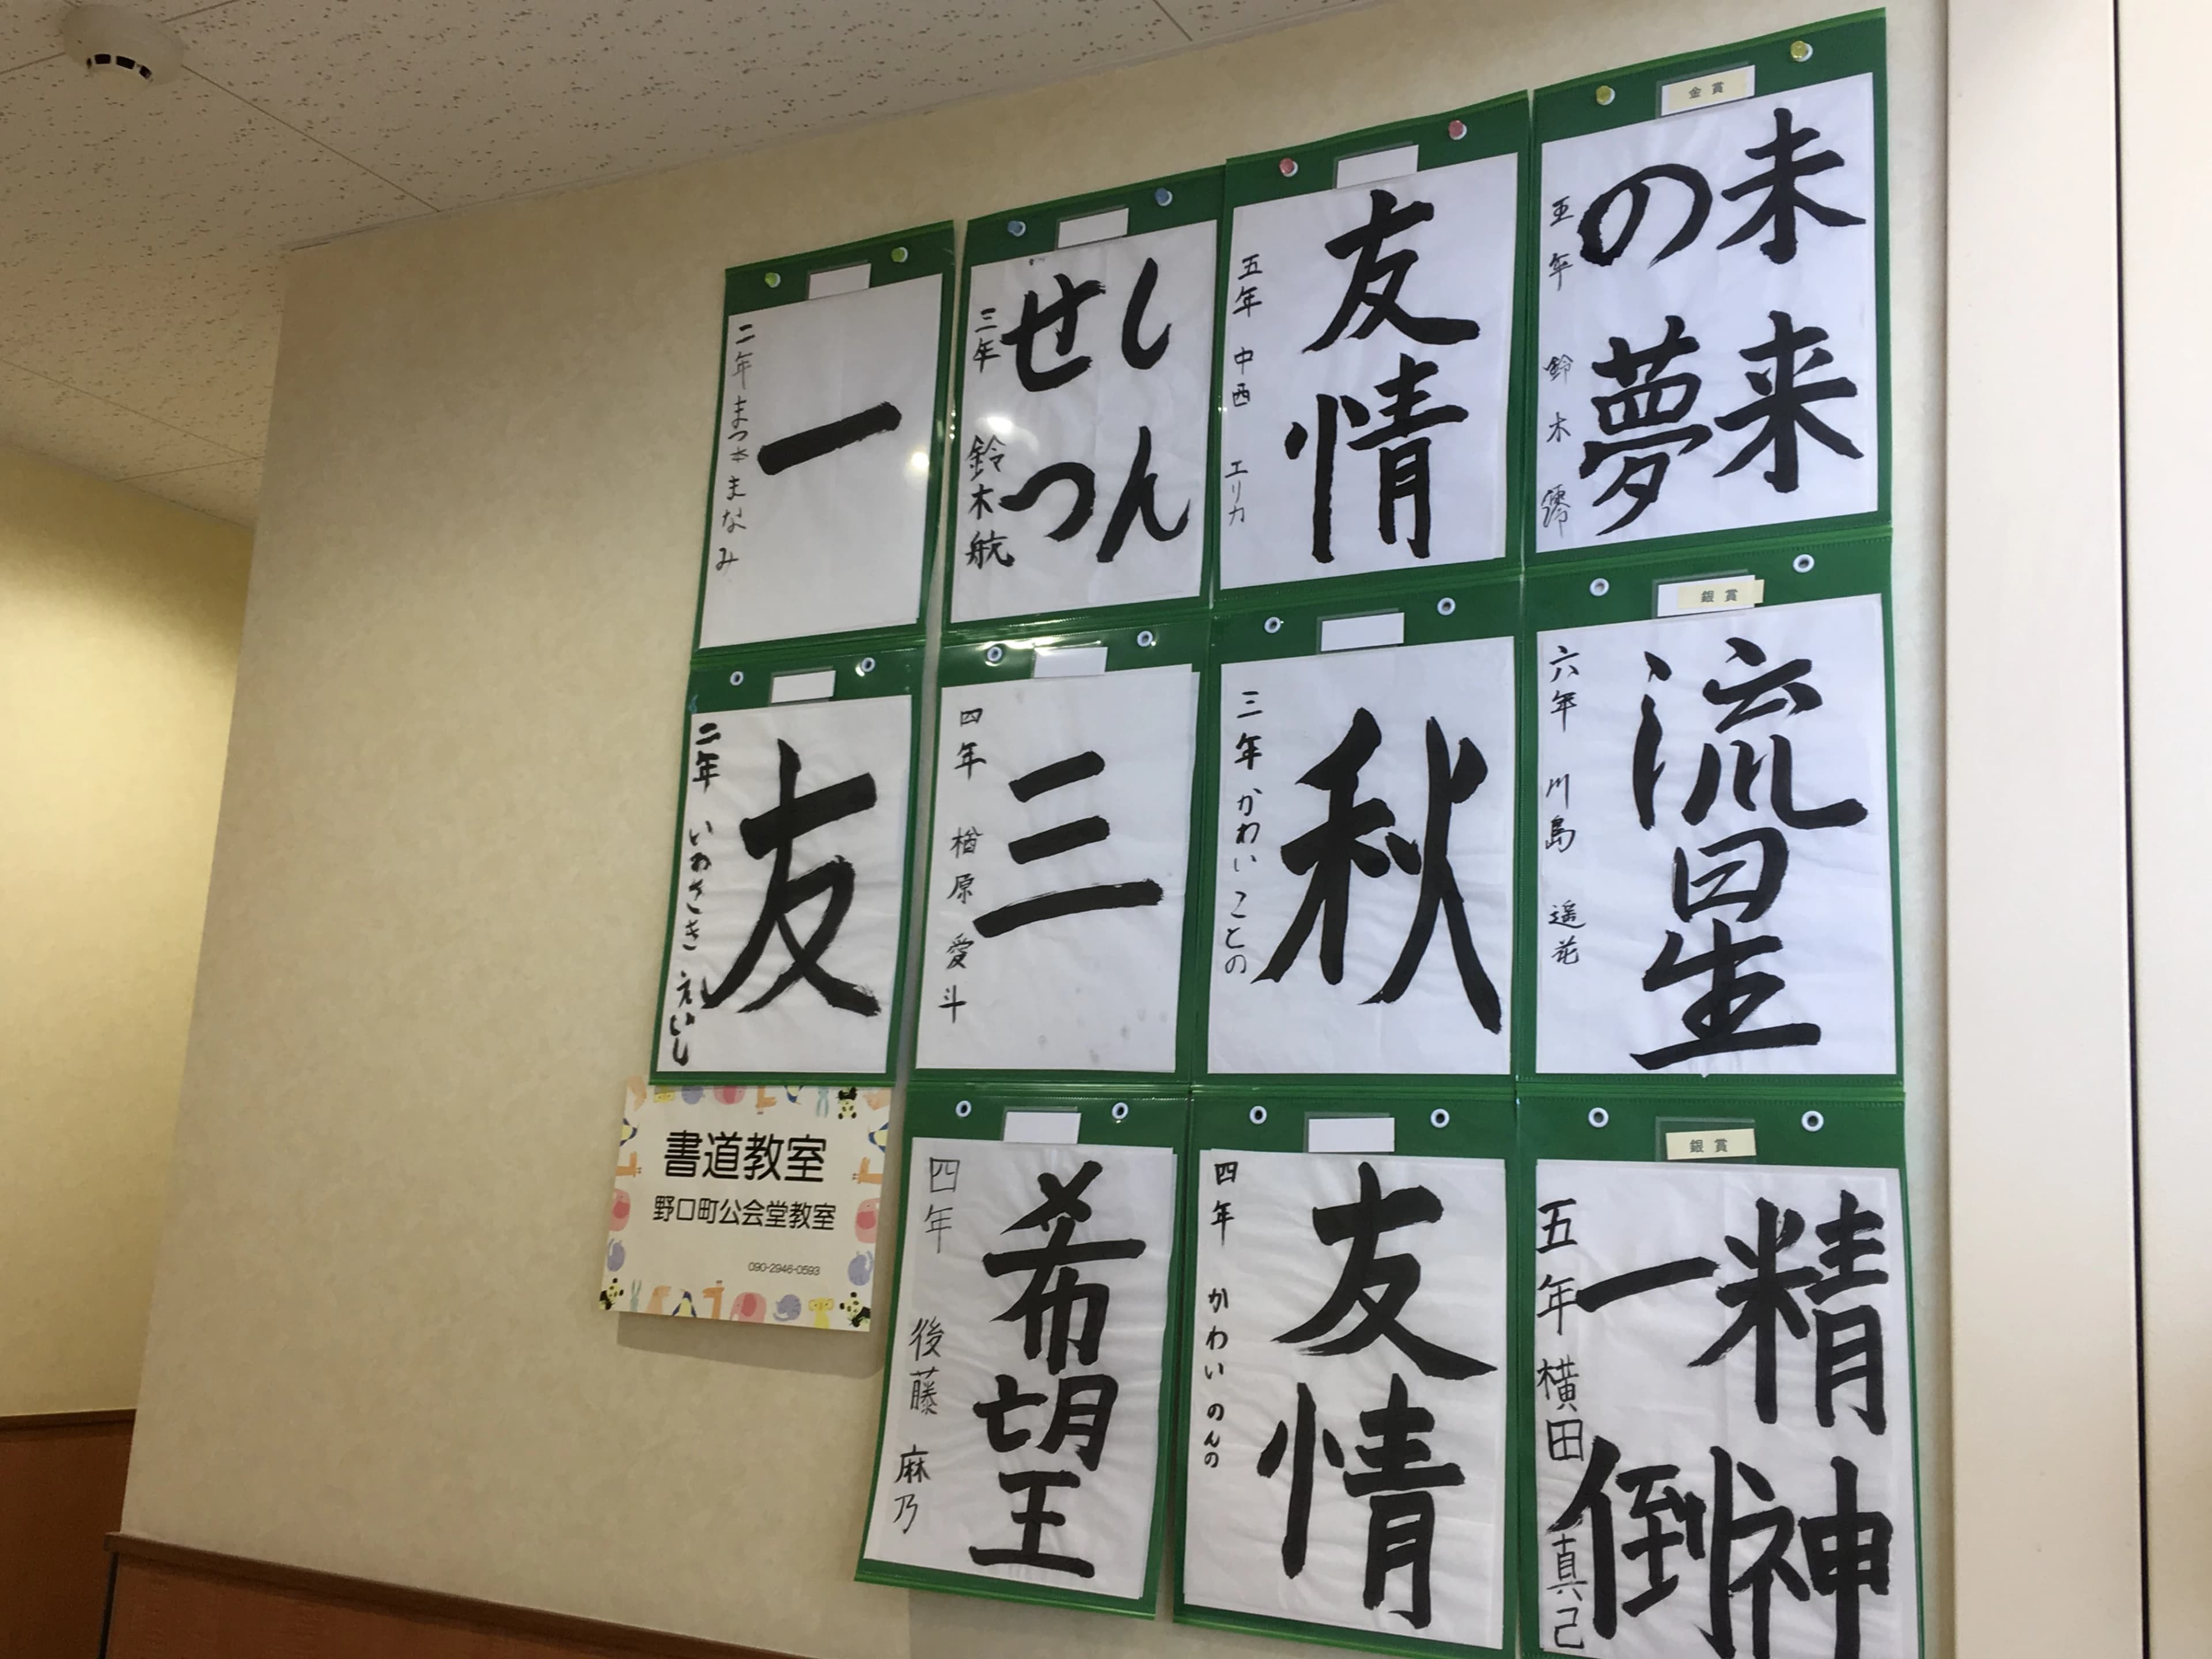 金賞
未来
の夢
五年 鈴木 澪
銀賞
流星
六年 川島 遥花
銀賞
精神
一倒
五年 横田 真己
友情
五年 中西 エリカ
秋
三年 かわい ことの
友情
四年 かわい のんの
しん
せつ
三年 鈴木航
三
四年 楢原 愛斗
希望
四年 後藤 麻乃
一
二年 まつ本 まなみ
友
二年 いわさき えいじ
書道教室
野口町公会堂教室
090-2946-0593